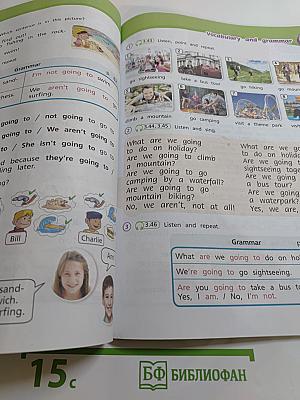 which sentence is in this picture?
find
in the rock.
Grammar
sand.
I'm not going to swim.
We aren't going to
surfing.
to / not going to go
to / We aren't going
to / She isn't going to
because they're going to
later.
Bill
Charlie
sand-
wich.
rfing.
Vocabulary and grammar
1 3.43 Listen, point and repeat.
go sightseeing
take a bus tour
go biking
go moun
climb a mountain
go camping
visit a theme park
2 3.44, 3.45 Listen and sing.
What are we going
to do on holiday?
Are we going to climb
a mountain?
Are we going to go
camping by a waterfall?
Are we going to go
mountain biking?
No, we aren't, not at all!
What are we go
to do on holida
Are we going t
sightseeing toge
Are we going t
a bus tour?
Are we going
a waterpark?
Yes, we are,
3 3.46 Listen and repeat.
Grammar
What are we going to do on ho
We're going to go sightseeing.
Are you going to take a bus to
Yes, I am. / No, I'm not.
15 c
БФ БИБЛИОФАН